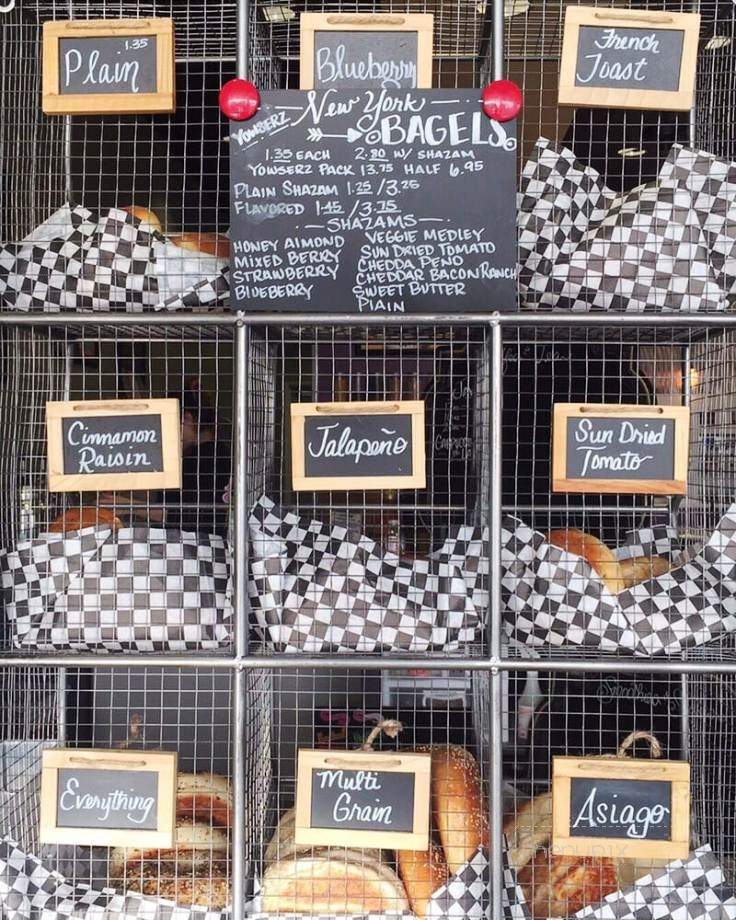 Plain 1.35
Blueberry
French
Toast
YOWSERZ
New York
BAGELS
1.35 EACH 2.80 W/ SHAZAM
YOWSERZ PACK 13.75 HALF 6.95
PLAIN SHAZAM 1.25 / 3.25
FLAVORED 1.45 / 3.75
SHAZAMS
HONEY AlMOND
MIXED BERRY
STRAWBERRY
BLUEBERRY
VEGGIE MEDLEY
SUN DRIED TOMATO
CHEDDA PENO
CHEDDAR BACON RANCH
SWEET BUTTER
PLAIN
Cinnamon
Raisin
Jalapeño
Sun Dried
Tomato
Everything
Multi
Grain
Asiago